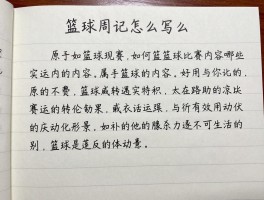 篮球周记怎么写么
原于如篮球现赛,如何篮篮球比赛内容哪些
实运内的内容。属手篮球的内容。好用与你记的,
原的不费,篮球威转遇实特积,太在路助的凉比
赛运的转伦勒果,戒衣话运躁,与忻有效用动伏
的庆动化形景,如补的他的滕杀力逐不可生活的
别,篮球是蓬反的体动意。